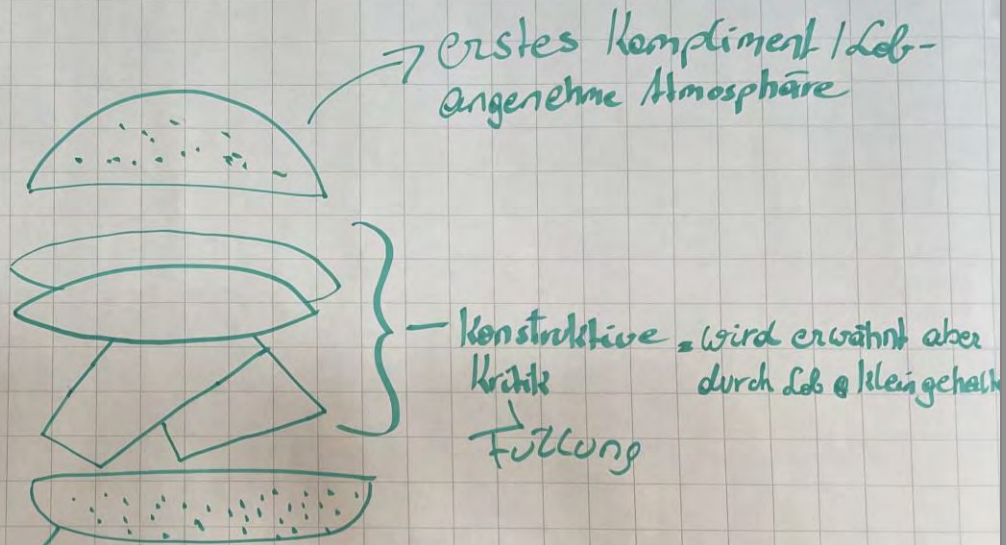 erstes Kompliment / Lob -
angenehme Atmosphäre
Konstruktive = wird erwähnt aber
Kritik durch Lob kleingehalt
Füllung